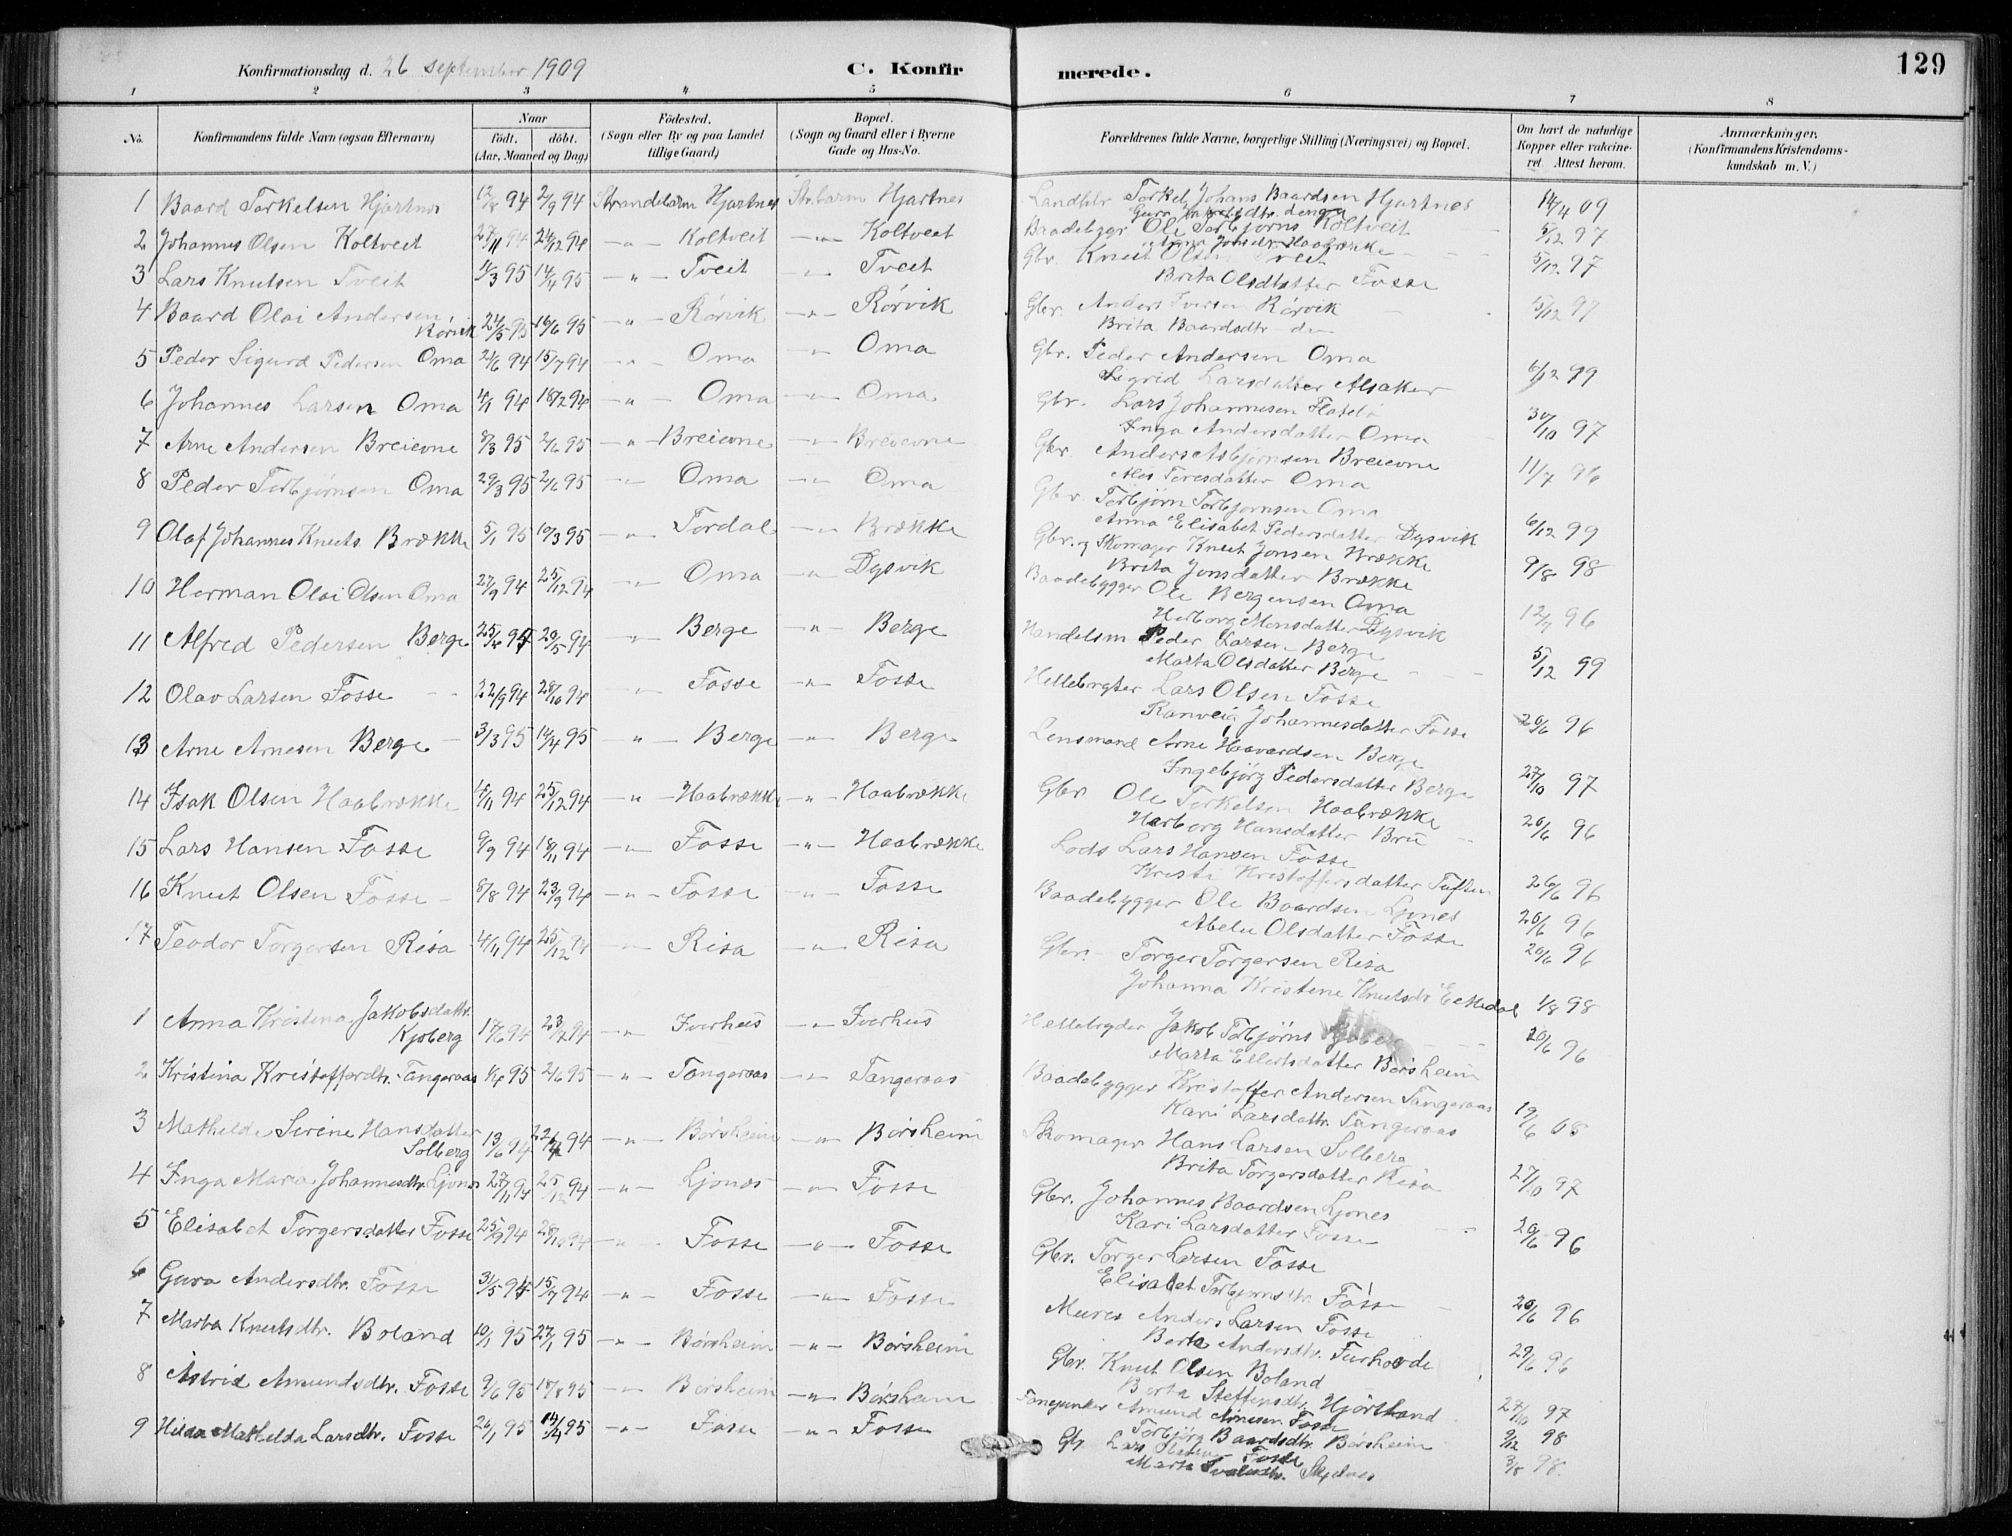 129
Konfirmationsdag d. 26 september 1909 C. Konfirmerede.
1 2 3 4 5 6 7 8
No. Konfirmandens fulde Navn (ogsaa Efternavn) Naar födt. döbt. (Aar, Maaned og Dag) Födested. (Sogn eller By og paa Landet tillige Gaard) Bopæl. (Sogn og Gaard eller i Byerne Gade og Hus-No. Forældrenes fulde Navne, borgerlige Stilling (Næringsvei) og Bopæl. Om havt de naturlige Kopper eller vakcineret. Attest herom. Anmærkninger. (Konfirmandens Kristendomskundskab m. V.)
1 Baard Torkelsen Hjartnes 12/8 94 2/9 94 Strandebarm Hjartnes Hjartnes Torkel Johans Baardsen Hjartnes 14/4 09
2 Johannes Olsen Koltveit 27/11 94 24/12 94 -"- Koltveit -"- Koltveit Baadebygr Ole Torbjørns Koltveit 5/12 97
3 Lars Knutsen Tveit 1/3 95 14/4 95 -"- Tveit -"- Tveit Gbr. Knut Olsen Tveit 5/12 97
Brita Olsdatter Fosse
4 Baard Olai Andersen Rörvik 24/5 95 16/6 95 -"- Rörvik -"- Rörvik Gbr. Anders Iversen Rörvik 5/12 97
Brita Baardsdtr
5 Peder Sigurd Pedersen Oma 21/6 94 15/7 94 -"- Oma -"- Oma Gbr. Peder Andersen Oma
Sigrid Larsdatter Alsaker 6/12 99
6 Johannes Larsen Oma 4/1 94 18/2 94 -"- Oma -"- Oma Gbr. Lars Johannesen Flatebö
Inga Andersdatter Oma 30/10 97
7 Arne Andersen Breievne 8/3 95 2/6 95 -"- Breievne -"- Breievne Gbr. Anders Asbjørnsen Breievne
Toresdatter Oma 11/7 96
8 Peder Torbjørnsen Oma 29/3 95 2/6 95 -"- Oma -"- Oma Gbr Torbjørn Torbjørnsen Oma
Anna Elisabet Pedersdatter Dysvik 6/12 99
9 Olaf Johannes Knuts. Brække 5/1 95 10/3 95 -"- Tordal -"- Brække Gbr. og Skomager Knut Jonsen Brække
Brita Jonsdatter Brække 9/8 98
10 Herman Olai Olsen Oma 27/9 94 25/12 94 -"- Oma -"- Dysvik Baadebygger Ole Bergensen Oma
Herborg Monsdatter Dysvik 12/7 96
11 Alfred Pedersen Berge 25/4 94 20/5 94 -"- Berge -"- Berge Handelsm Peder Larsen Berge
Marta Olsdatter Berge 5/12 99
12 Olav Larsen Fosse 22/9 94 28/10 94 -"- Fosse -"- Fosse Lars Olsen Fosse
Ranveig Johannesdatter Fosse 20/6 96
13 Arne Arnesen Berge 3/3 95 14/4 95 -"- Berge -"- Berge Lensmand Arne Haavardsen Berge
Ingebjörg Pedersdatter Berge 27/10 97
14 Isak Olsen Haabrække 4/11 94 25/12 94 -"- Haabrække -"- Haabrække Gbr Ole Torkelsen Haabrække
Herborg Hansdatter Bru 20/6 96
15 Lars Hansen Fosse 9/9 94 18/11 94 -"- Fosse -"- Haabrække Lods Lars Hansen Fosse
Kristi Kristoffersdatter Tuften 20/6 96
16 Knut Olsen Fosse 8/8 94 23/9 94 -"- Fosse -"- Fosse Baadebygger Ole Baardsen Ljones 20/6 96
Olsdatter Fosse 20/6 96
17 Teodor Torgersen Risa 4/11 94 25/12 94 -"- Risa -"- Risa Gbr. Torger Torgersen Risa
Johanna Kristine Knutsdr 1/8 98
1 Anna Kristina Jakobsdatr. Kjoberg 17/6 94 23/7 94 -"- Iverhus -"- Iverhus Jakob Torbjørns 20/6 96
Marta Ellertsdatter Børsheim
2 Kristina Kristoffersdtr. Tangeraas 95 2/6 95 -"- Tangeraas -"- Tangeraas Baadebygger Kristoffer Andersen Tangeraas
Kari Larsdatr. Tangeraas 19/6 08
3 Mathilde Serine Hansdatter Solberg 13/6 94 94 -"- Børsheim -"- Børsheim Skomager Hans Larsen Solberg
Brita Torgersdatter Risa 27/10 97
4 Inga Maria Johannesdtr. Ljones 27/11 94 25/12 94 -"- Ljones -"- Fosse Gbr. Johannes Baardsen Ljones
Kari Larsdatter Fosse 20/6 96
5 Elisabet Torgersdatter Fosse 25/9 94 28/10 94 -"- Fosse -"- Fosse Gbr. Torger Larsen Fosse
Elisabet Torbjørnsdtr. Fosse 20/6 96
6 Guro Andersdtr. Fosse 31/5 94 15/7 94 -"- Fosse -"- Fosse Murer Anders Larsen Fosse
Andersdtr. 29/6 96
7 Marta Knutsdtr. Boland 10/1 95 27/1 95 -"- Børsheim -"- Børsheim Gbr. Knut Olsen Boland
Berta Steffensdtr. 27/10 97
8 Astrid Amundsdtr. Fosse 9/6 95 18/8 95 -"- Børsheim -"- Børsheim Amund Arnesen Fosse
Torbjørg Baardsdtr. Børsheim 9/12 98
9 Hilda Mathilda Larsdtr. Fosse 26/1 95 14/4 95 -"- Fosse -"- Fosse Gbr. Lars Fosse
Marta 3/8 98